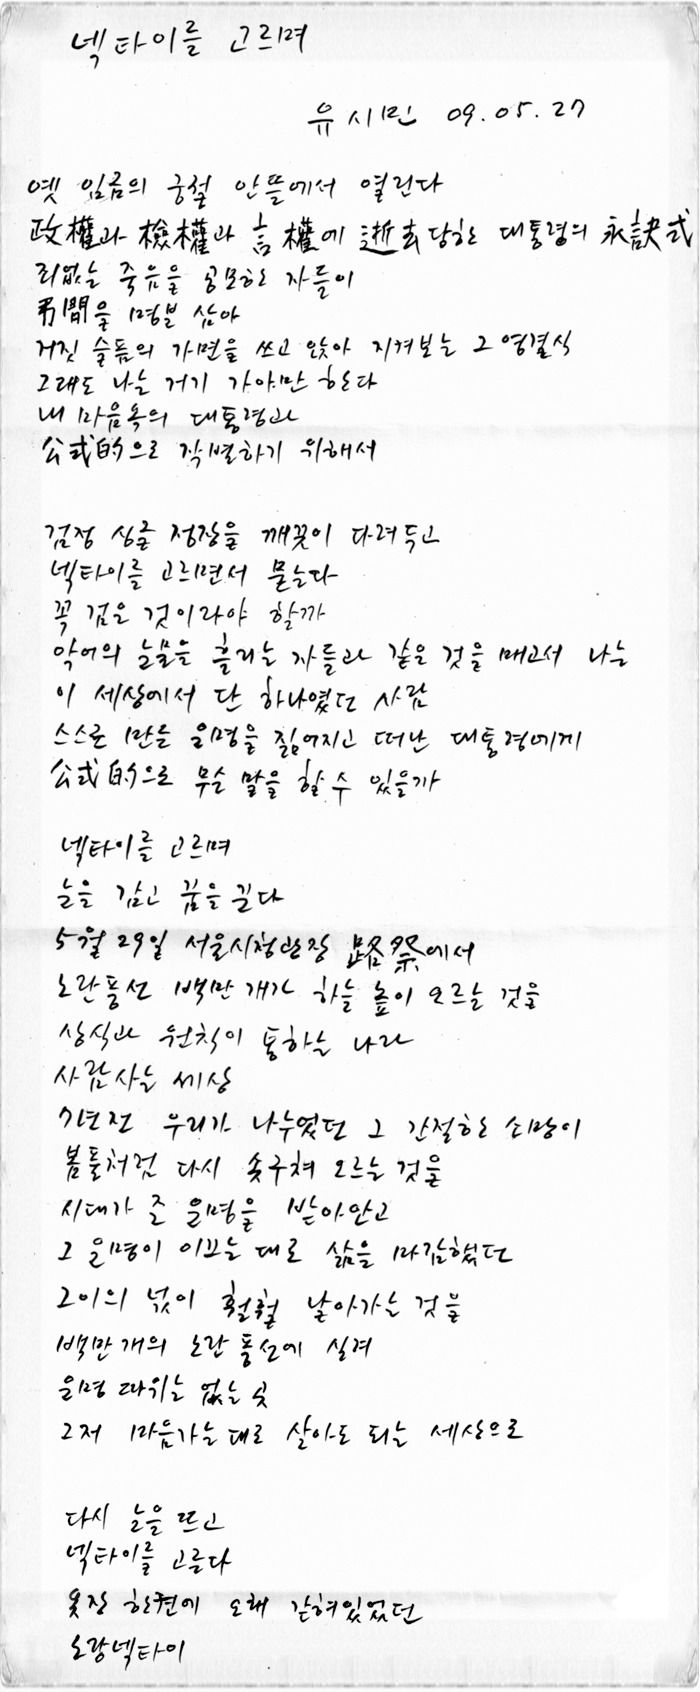 넥타이를 고르며
유시민 09.05.27
옛 임금의 궁궐 안뜰에서 열린다
政權과 檢權과 言權에 逝去당한 대통령의 永訣式
죄없는 죽음을 공모한 자들이
弔問을 명분 삼아
거짓 슬픔의 가면을 쓰고 앉아 지켜보는 그 영결식
그래도 나는 거기 가야만 한다
내 마음속의 대통령과
公式的으로 작별하기 위해서
검정 싱글 정장을 깨끗이 다려두고
넥타이를 고르면서 묻는다
꼭 검은 것이라야 할까
악어의 눈물을 흘리는 자들과 같은 것을 매고서 나는
이 세상에서 단 하나였던 사람
스스로 만든 운명을 짊어지고 떠난 대통령에게
公式的으로 무슨 말을 할 수 있을까
넥타이를 고르며
눈을 감고 꿈을 꾼다
5월 29일 서울시청광장 路祭에서
노란풍선 백만 개가 하늘 높이 오르는 것을
상식과 원칙이 통하는 나라
사람사는 세상
7년전 우리가 나누었던 그 간절한 소망이
봄풀처럼 다시 솟구쳐 오르는 것을
시대가 준 운명을 받아안고
그 운명이 이끄는 대로 삶을 마감했던
그이의 넋이 훨훨 날아가는 것을
백만 개의 노란 풍선에 실려
운명 따위는 없는 곳
그저 마음가는 대로 살아도 되는 세상으로
다시 눈을 뜨고
넥타이를 고른다
옷장 한켠에 오래 갇혀있었던
노랑넥타이